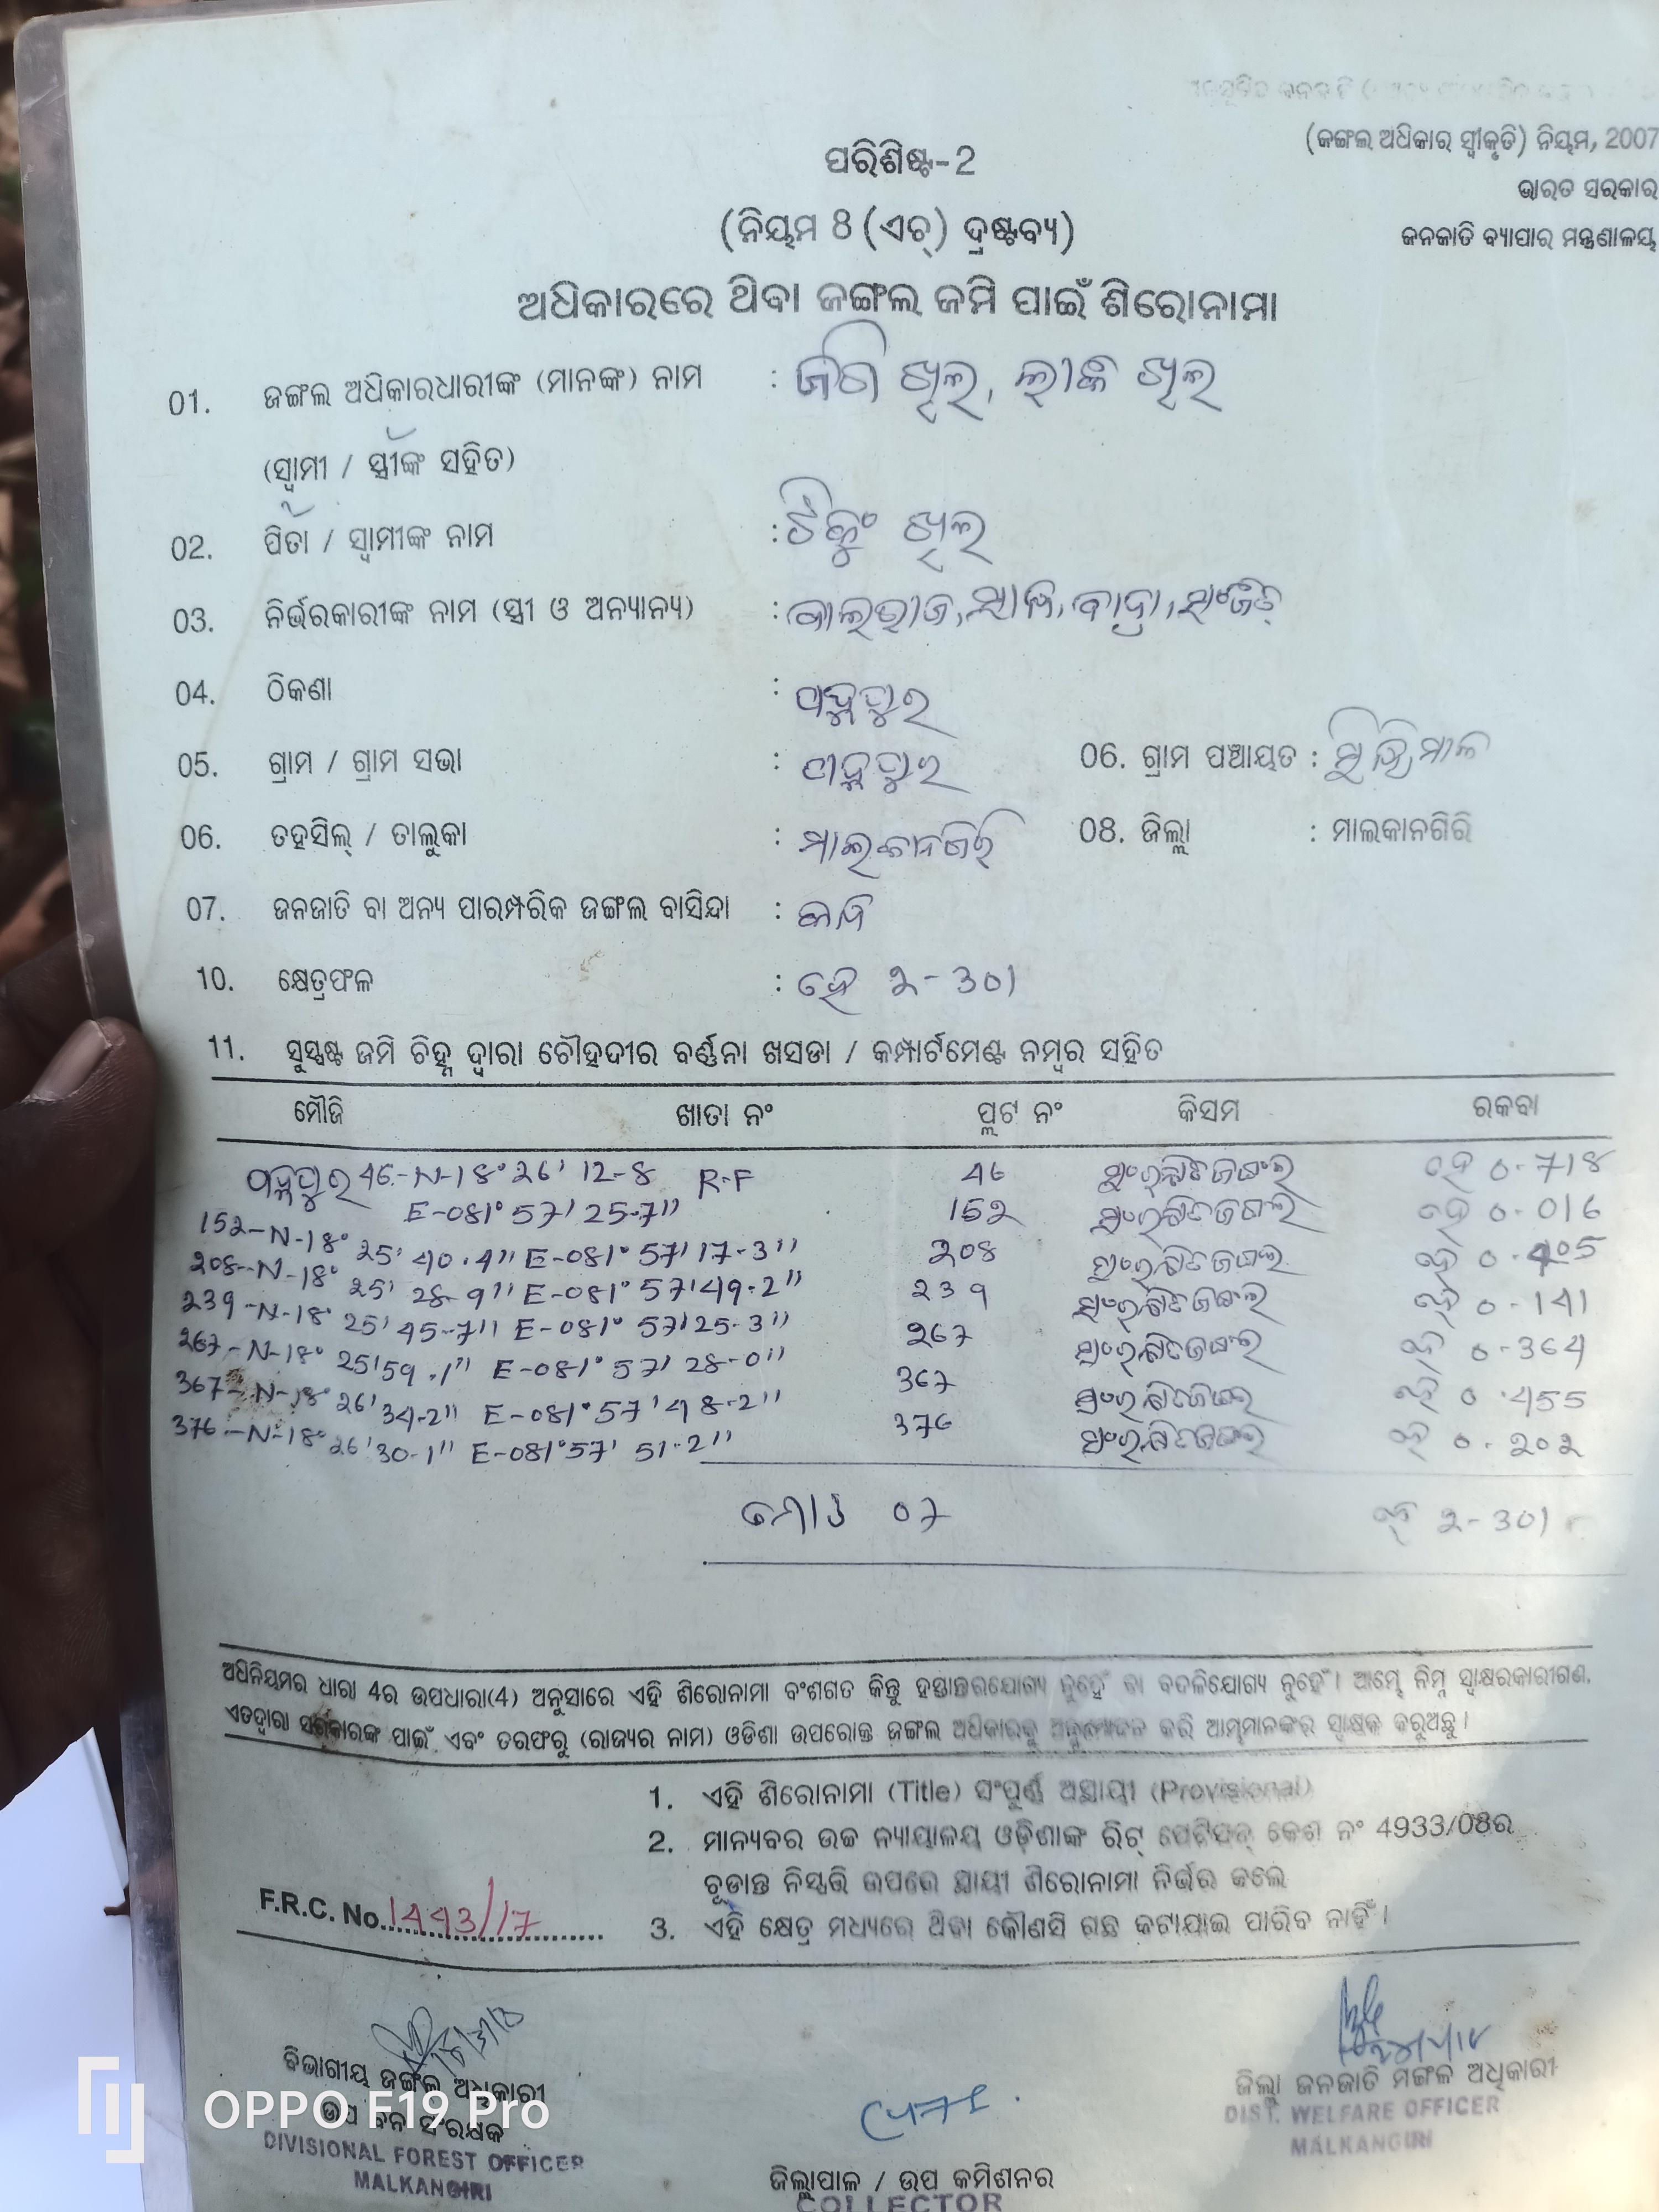 (ଜଙ୍ଗଲ ଅଧିକାର ସ୍ୱୀକୃତି) ନିୟମ, 2007
ଭାରତ ସରକାର
ଜନଜାତି ବ୍ୟାପାର ମନ୍ତ୍ରଣାଳୟ
ପରିଶିଷ୍ଟ-2
(ନିୟମ 8 (ଏଚ୍) ଦ୍ରଷ୍ଟବ୍ୟ)
ଅଧିକାରରେ ଥିବା ଜଙ୍ଗଲ ଜମି ପାଇଁ ଶିରୋନାମା
01. ଜଙ୍ଗଲ ଅଧିକାରଧାରୀଙ୍କ (ମାନଙ୍କ) ନାମ :
(ସ୍ୱାମୀ / ସ୍ତ୍ରୀଙ୍କ ସହିତ)
02. ପିତା / ସ୍ୱାମୀଙ୍କ ନାମ :
03. ନିର୍ଭରକାରୀଙ୍କ ନାମ (ସ୍ତ୍ରୀ ଓ ଅନ୍ୟାନ୍ୟ) :
04. ଠିକଣା : ପଦ୍ମପୁର
05. ଗ୍ରାମ / ଗ୍ରାମ ସଭା : ପଦ୍ମପୁର 06. ଗ୍ରାମ ପଞ୍ଚାୟତ :
06. ତହସିଲ୍ / ତାଲୁକା : ମାଲକାନଗିରି 08. ଜିଲ୍ଲା : ମାଲକାନଗିରି
07. ଜନଜାତି ବା ଅନ୍ୟ ପାରମ୍ପରିକ ଜଙ୍ଗଲ ବାସିନ୍ଦା :
10. କ୍ଷେତ୍ରଫଳ : ହେ 2-301
11. ସୁସ୍ପଷ୍ଟ ଜମି ଚିହ୍ନ ଦ୍ୱାରା ଚୌହଦୀର ବର୍ଣ୍ଣନା ଖସଡା / କମ୍ପାର୍ଟମେଣ୍ଟ ନମ୍ବର ସହିତ
ମୌଜି ଖାତା ନଂ ପ୍ଲଟ ନଂ କିସମ ରକବା
ପଦ୍ମପୁର 46-N-18° 26' 12-8 R-F 46 ସଂରକ୍ଷିତ ଜଙ୍ଗଲ ହେ 0-718
E-081° 57' 25-7" 152 ସଂରକ୍ଷିତ ଜଙ୍ଗଲ ହେ 0-016
152-N-18° 25' 40.4" E-081° 57' 17-3" 208 ସଂରକ୍ଷିତ ଜଙ୍ଗଲ ହେ 0-405
208-N-18° 25' 28-9" E-081° 57' 49-2" 239 ସଂରକ୍ଷିତ ଜଙ୍ଗଲ ହେ 0-141
239-N-18° 25' 45-7" E-081° 57' 25-3" 267 ସଂରକ୍ଷିତ ଜଙ୍ଗଲ ହେ 0-364
267-N-18° 25' 59.1" E-081° 57' 28-0" 367 ସଂରକ୍ଷିତ ଜଙ୍ଗଲ ହେ 0.455
367-N-18° 26' 34-2" E-081° 57' 48-2" 376 ସଂରକ୍ଷିତ ଜଙ୍ଗଲ ହେ 0-202
376-N-18° 26' 30-1" E-081° 57' 51-2"
ମୋଟ 07 ହେ 2-301
ଅଧିନିୟମର ଧାରା 4ର ଉପଧାରା(4) ଅନୁସାରେ ଏହି ଶିରୋନାମା ବଂଶଗତ କିନ୍ତୁ ହସ୍ତାନ୍ତରଯୋଗ୍ୟ ନୁହେଁ ବା ବଦଳିଯୋଗ୍ୟ ନୁହେଁ। ଆମ୍ଭେ ନିମ୍ନ ସ୍ୱାକ୍ଷରକାରୀଗଣ,
ଏତଦ୍ୱାରା ସରକାରଙ୍କ ପାଇଁ ଏବଂ ତରଫରୁ (ରାଜ୍ୟର ନାମ) ଓଡିଶା ଉପରୋକ୍ତ ଜଙ୍ଗଲ ଅଧିକାରକୁ ଅନୁମୋଦନ କରି ଆମ୍ଭମାନଙ୍କର ସ୍ୱାକ୍ଷକ କରୁଅଛୁ।
1. ଏହି ଶିରୋନାମା (Title) ସଂପୂର୍ଣ୍ଣ ଅସ୍ଥାୟୀ (Provisional)
2. ମାନ୍ୟବର ଉଚ୍ଚ ନ୍ୟାୟାଳୟ ଓଡ଼ିଶାଙ୍କ ରିଟ୍ ପେଟିସନ୍ କେଶ ନଂ 4933/08ର
ଚୂଡାନ୍ତ ନିସ୍ପତ୍ତି ଉପରେ ସ୍ଥାୟୀ ଶିରୋନାମା ନିର୍ଭର କଲେ
F.R.C. No. 1443/17
3. ଏହି କ୍ଷେତ୍ର ମଧ୍ୟରେ ଥିବା କୌଣସି ଗଛ କଟାଯାଇ ପାରିବ ନାହିଁ।
ବିଭାଗୀୟ ଜଙ୍ଗଲ ଅଧିକାରୀ
ଉପ ବନ ସଂରକ୍ଷକ
DIVISIONAL FOREST OFFICER
MALKANGIRI
ଜିଲ୍ଲାପାଳ / ଉପ କମିଶନର
COLLECTOR
ଜିଲ୍ଲା ଜନଜାତି ମଙ୍ଗଳ ଅଧିକାରୀ
DIST. WELFARE OFFICER
MALKANGIRI
OPPO F19 Pro